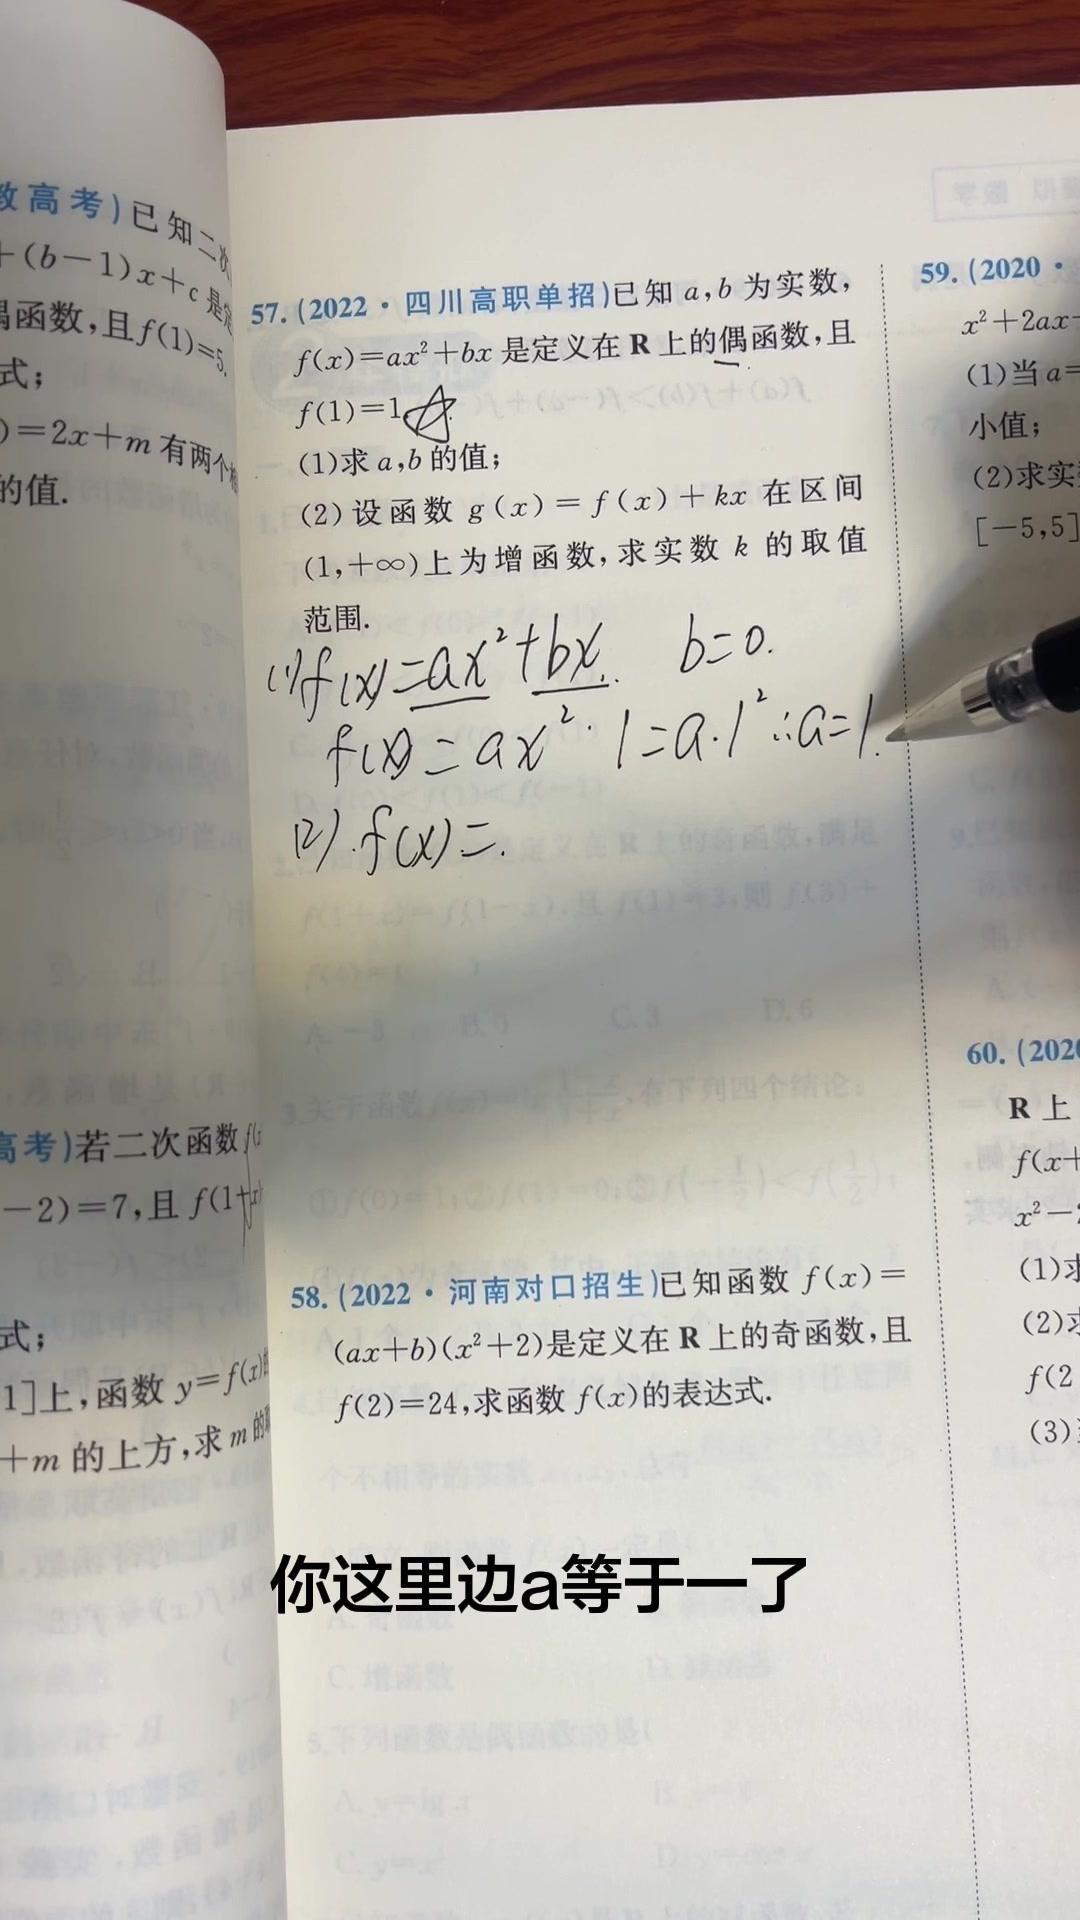 教高考)已知二次
+(b-1)x+c是定
偶函数,且f(1)=5.
式;
)=2x+m有两个相
的值.
高考)若二次函数f(x
-2)=7,且f(1+x)
式;
1]上,函数y=f(x)的
+m的上方,求m的取
57.(2022·四川高职单招)已知a,b为实数,
f(x)=ax²+bx是定义在R上的偶函数,且
f(1)=1.
(1)求a,b的值;
(2)设函数g(x)=f(x)+kx在区间
(1,+∞)上为增函数,求实数k的取值
范围.
(1)f(x)=ax²+bx. b=0.
f(x)=ax². 1=a·1² ∴a=1.
(2).f(x)=.
58.(2022·河南对口招生)已知函数f(x)=
(ax+b)(x²+2)是定义在R上的奇函数,且
f(2)=24,求函数f(x)的表达式.
你这里边a等于一了
59.(2020·
x²+2ax-
(1)当a=
小值;
(2)求实
[-5,5]
60.(2020
R上
f(x+
x²-2
(1)求
(2)求
f(2
(3)